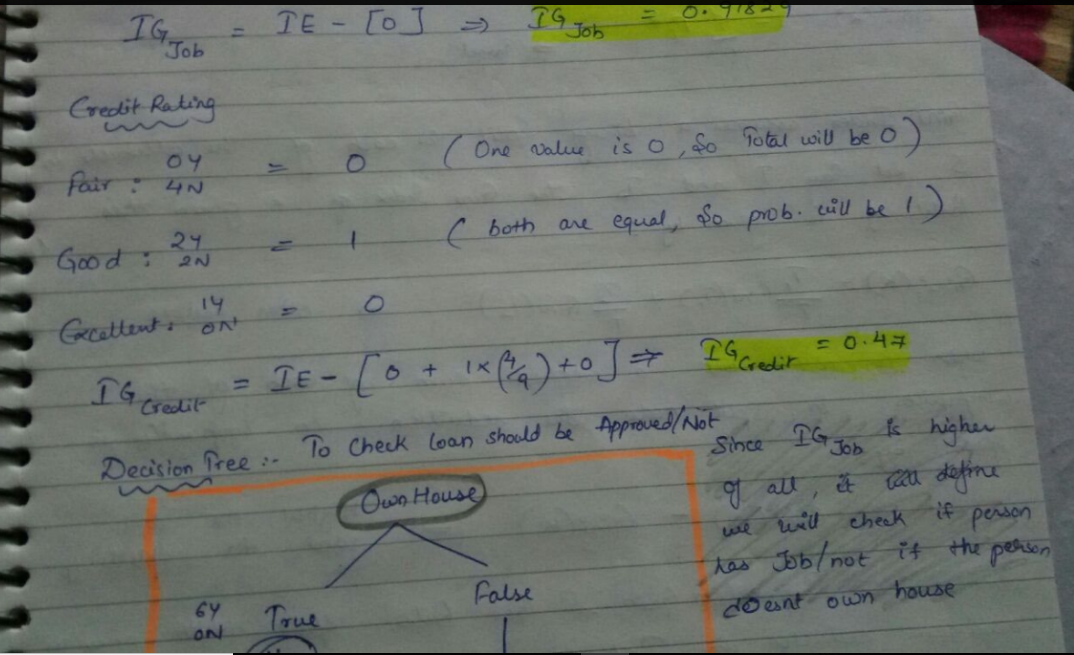 IG Job = IE - [0] ⇒ IG Job = 0.91829
Credit Rating
Fair : 0Y 4N = 0 ( One value is 0, So Total will be 0 )
Good : 2Y 2N = 1 ( both are equal, So prob. will be 1 )
Excellent : 1Y 0N = 0
IG Credit = IE - [ 0 + 1×(4/9) + 0 ] ⇒ IG Credit = 0.47
Decision Tree :- To Check loan should be Approved/Not
Since IG Job is higher
of all, it will define
we will check if person
has Job/not if the person
doesnt own house
Own House
6Y 0N True
False